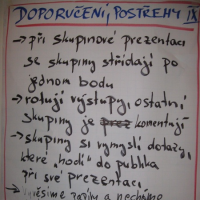 DOPORUČENÍ, POSTŘEHY IX
→ při skupinové prezentaci
se skupiny střídají po
jednom bodu
→ rotují výstupy, ostatní
skupiny je komentují
→ skupiny si vymyslí dotazy,
které "hodí" do publika
při své prezentaci
a necháme